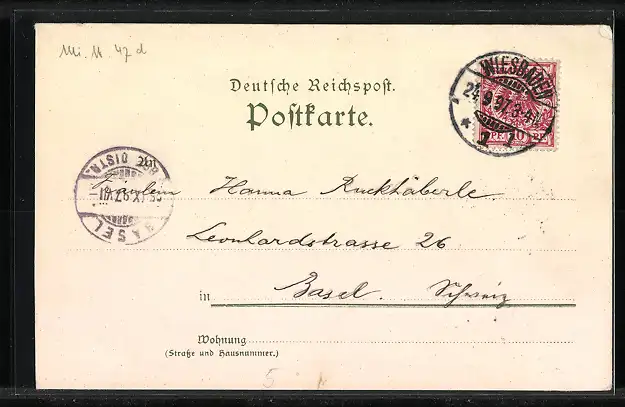 Mi. N. 47 d
Deutsche Reichspost.
Postkarte.
WIESBADEN
24.9.97.
* 1 *
PF 10 PF
An
BASEL
BR. DISTR.
IX.97.VI
Fräulein Hanna Ruckhäberle.
Leonhardstrasse 26
in Basel. Schweiz
Wohnung
(Straße und Hausnummer.)
5